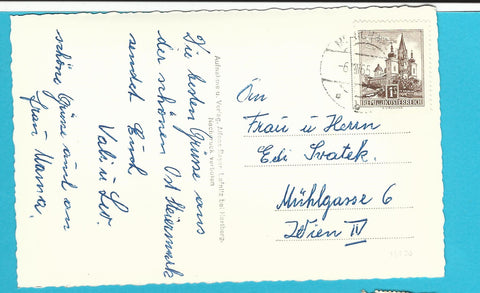 Die besten Grüsse aus
der schönen Ost Steiermark
sendet Euch
Vali u Leo
schöne Grüsse auch an
Frau Mama.
Aufnahme u. Verlag
bei Hartberg.
Nachdruck verboten
1S
REPUBLIK ÖSTERREICH
An
Frau u Herrn
Edi Svatek.
Mühlgasse 6
Wien IV